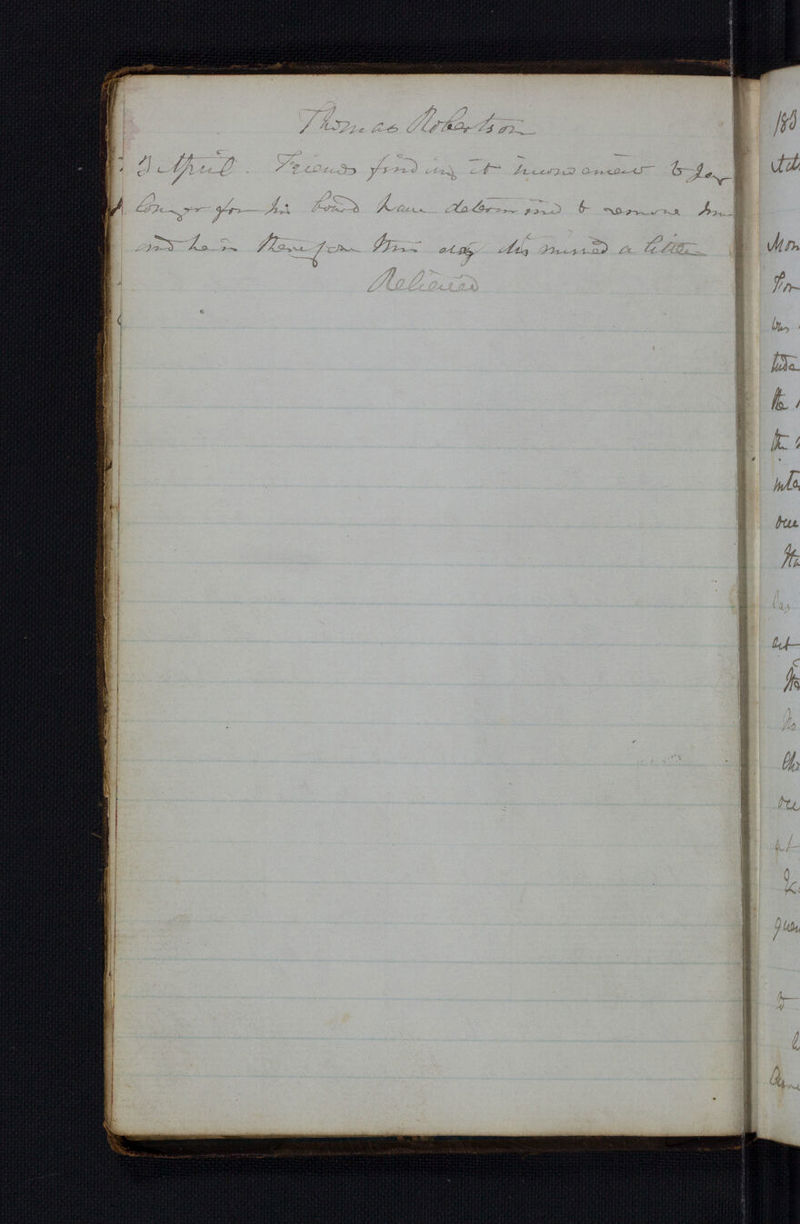 Thomas Robertson
April. Friends finding it inconvenient to pay
longer for his board have determined to remove him
and he is therefore this day dismissed a little
Relieved